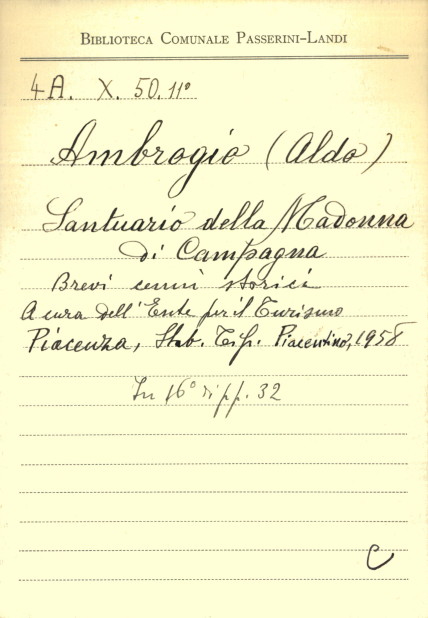 BIBLIOTECA COMUNALE PASSERINI-LANDI
4A. X. 50. 11º
Ambrogio (Aldo)
Santuario della Madonna
di Campagna
Brevi cenni storici
A cura dell'Ente per il Turismo
Piacenza, Stab. Tip. Piacentino, 1958
In 16º di pp. 32
C